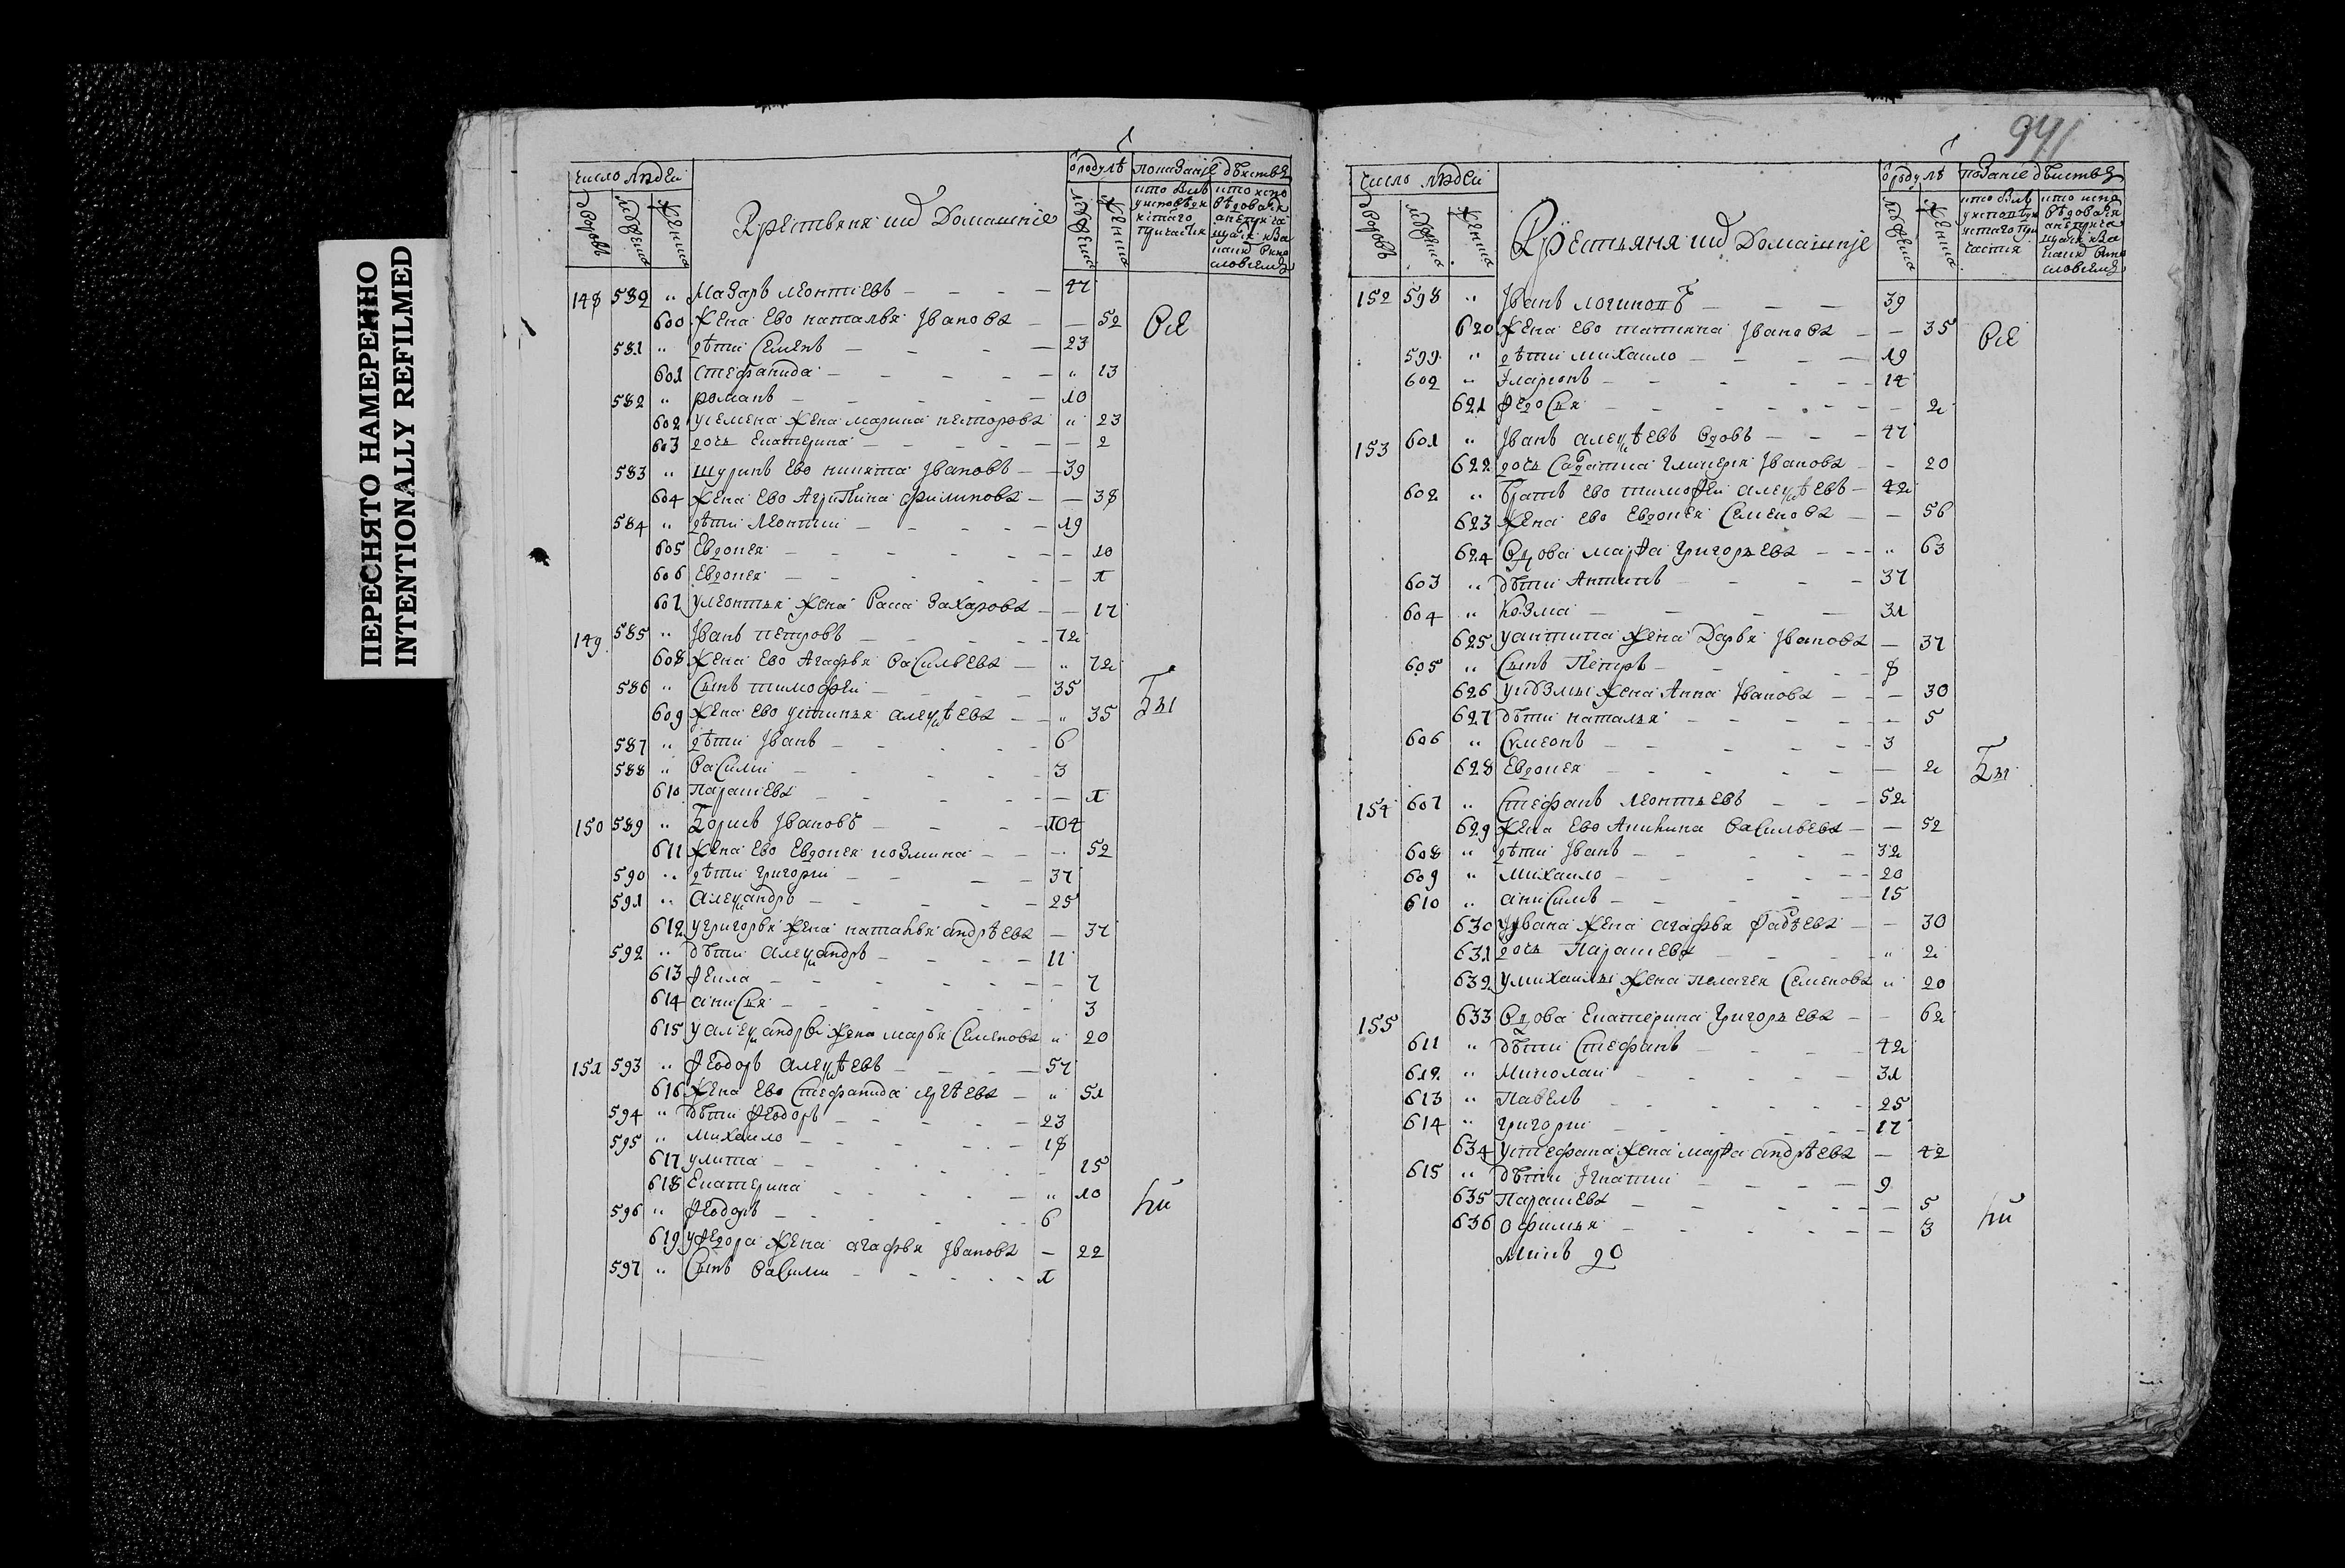 ПЕРЕСНЯТО НАМЕРЕННО
INTENTIONALLY REFILMED
число людеи
дворовъ
мужеска
женска
Крестьяня ихъ Домашніе
показаніе
148 582 " Назаръ леонтіевъ — 47
600 Жена Ево наталья Іванова — 52
581 " дѣти Семенъ — 23
601 Стефанида — " 13
582 " романъ — 10
602 усемена жена марина петорова " 23
603 дочь Екатерина — 2
583 " шуринъ Ево никита Івановъ — 39
604 Жена Ево Агрипина филипова — 38
584 " дѣти Леонтии — 19
605 Евдокея — 10
606 Евдокея — 1
607 улеонтья жена Раиа Захарова — 17
149 585 " Іванъ петровъ — 72
608 Жена Ево Агафья васильева — " 72
586 " Сынъ тимофеи — 35
609 Жена ево устинья алеѯѣева — " 35
587 " дѣти Іванъ — 6
588 " василии — 3
610 Парашева — 1
150 589 " Борисъ Івановъ — 104
611 Жена Ево Евдокея козмина — 52
590 " дѣти григории — 37
591 " Алеѯандръ — 25
612 угригорья жена наталья андрѣева — 37
592 " дѣти алеѯандръ — 11
613 Фекла — 7
614 анисья — 3
615 уалеѯандра жена марья Семенова " 20
151 593 " Феодоръ алеѯѣевъ — 57
616 Жена Ево Стефанида — " 51
594 " дѣти Феодоръ — 23
595 " михаило — 18
617 улита — 15
618 Екатерина — " 10
596 " Феодоръ — 6
619 уФедора жена агафья Іванова — 22
597 " Сынъ василии — 1
всѣ
бы
ли
94
число людеи
дворовъ
мужеска
женска
Крестьяня ихъ Домашніе
152 598 " Іванъ логиновъ — 39
620 Жена Ево татияна Іванова — 35
599 " дѣти михаило — 19
602 " Іларионъ — 14
621 Федосья — 2
153 601 " Іванъ алеѯѣевъ вдовъ — 47
622 дочь Салдатка гликерья Іванова — 20
602 " братъ ево тимофеи алеѯѣевъ — 42
623 Жена Ево Евдокея Семенова — 56
624 Вдова марфа григорьева — " 63
603 " дѣти Антипъ — 37
604 " козма — 31
625 уантипа жена Дарья Іванова — 37
605 " Сынъ Петръ — 8
626 укозмы жена Анна Іванова — 30
627 дѣти наталья — 5
606 " Симеонъ — 3
628 Евдокея — 2
154 607 " Стефанъ леонтьевъ — 52
629 Жена Ево васильева — 52
608 " дѣти Іванъ — 32
609 " Михаило — 20
610 " анисимъ — 15
630 уІвана жена агафья фадѣева — 30
631 дочь Парашева — " 2
632 умихаилы жена пелагея Семенова " 20
155 633 Вдова Екатерина григорьева — 62
611 " дѣти Стефанъ — 42
612 " Николаи — 31
613 " Павелъ — 25
614 " григории — 17
634 устефана жена марфа андрѣева — 42
615 " дѣти Ігнатии — 9
635 Парашева — 5
636 офимья — 3
всѣ
бы
ли